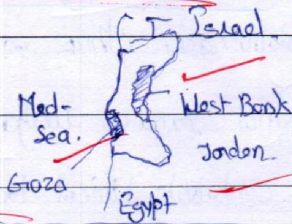 Israel
Med-
Sea.
West Bank
Jordon
Goza
Egypt